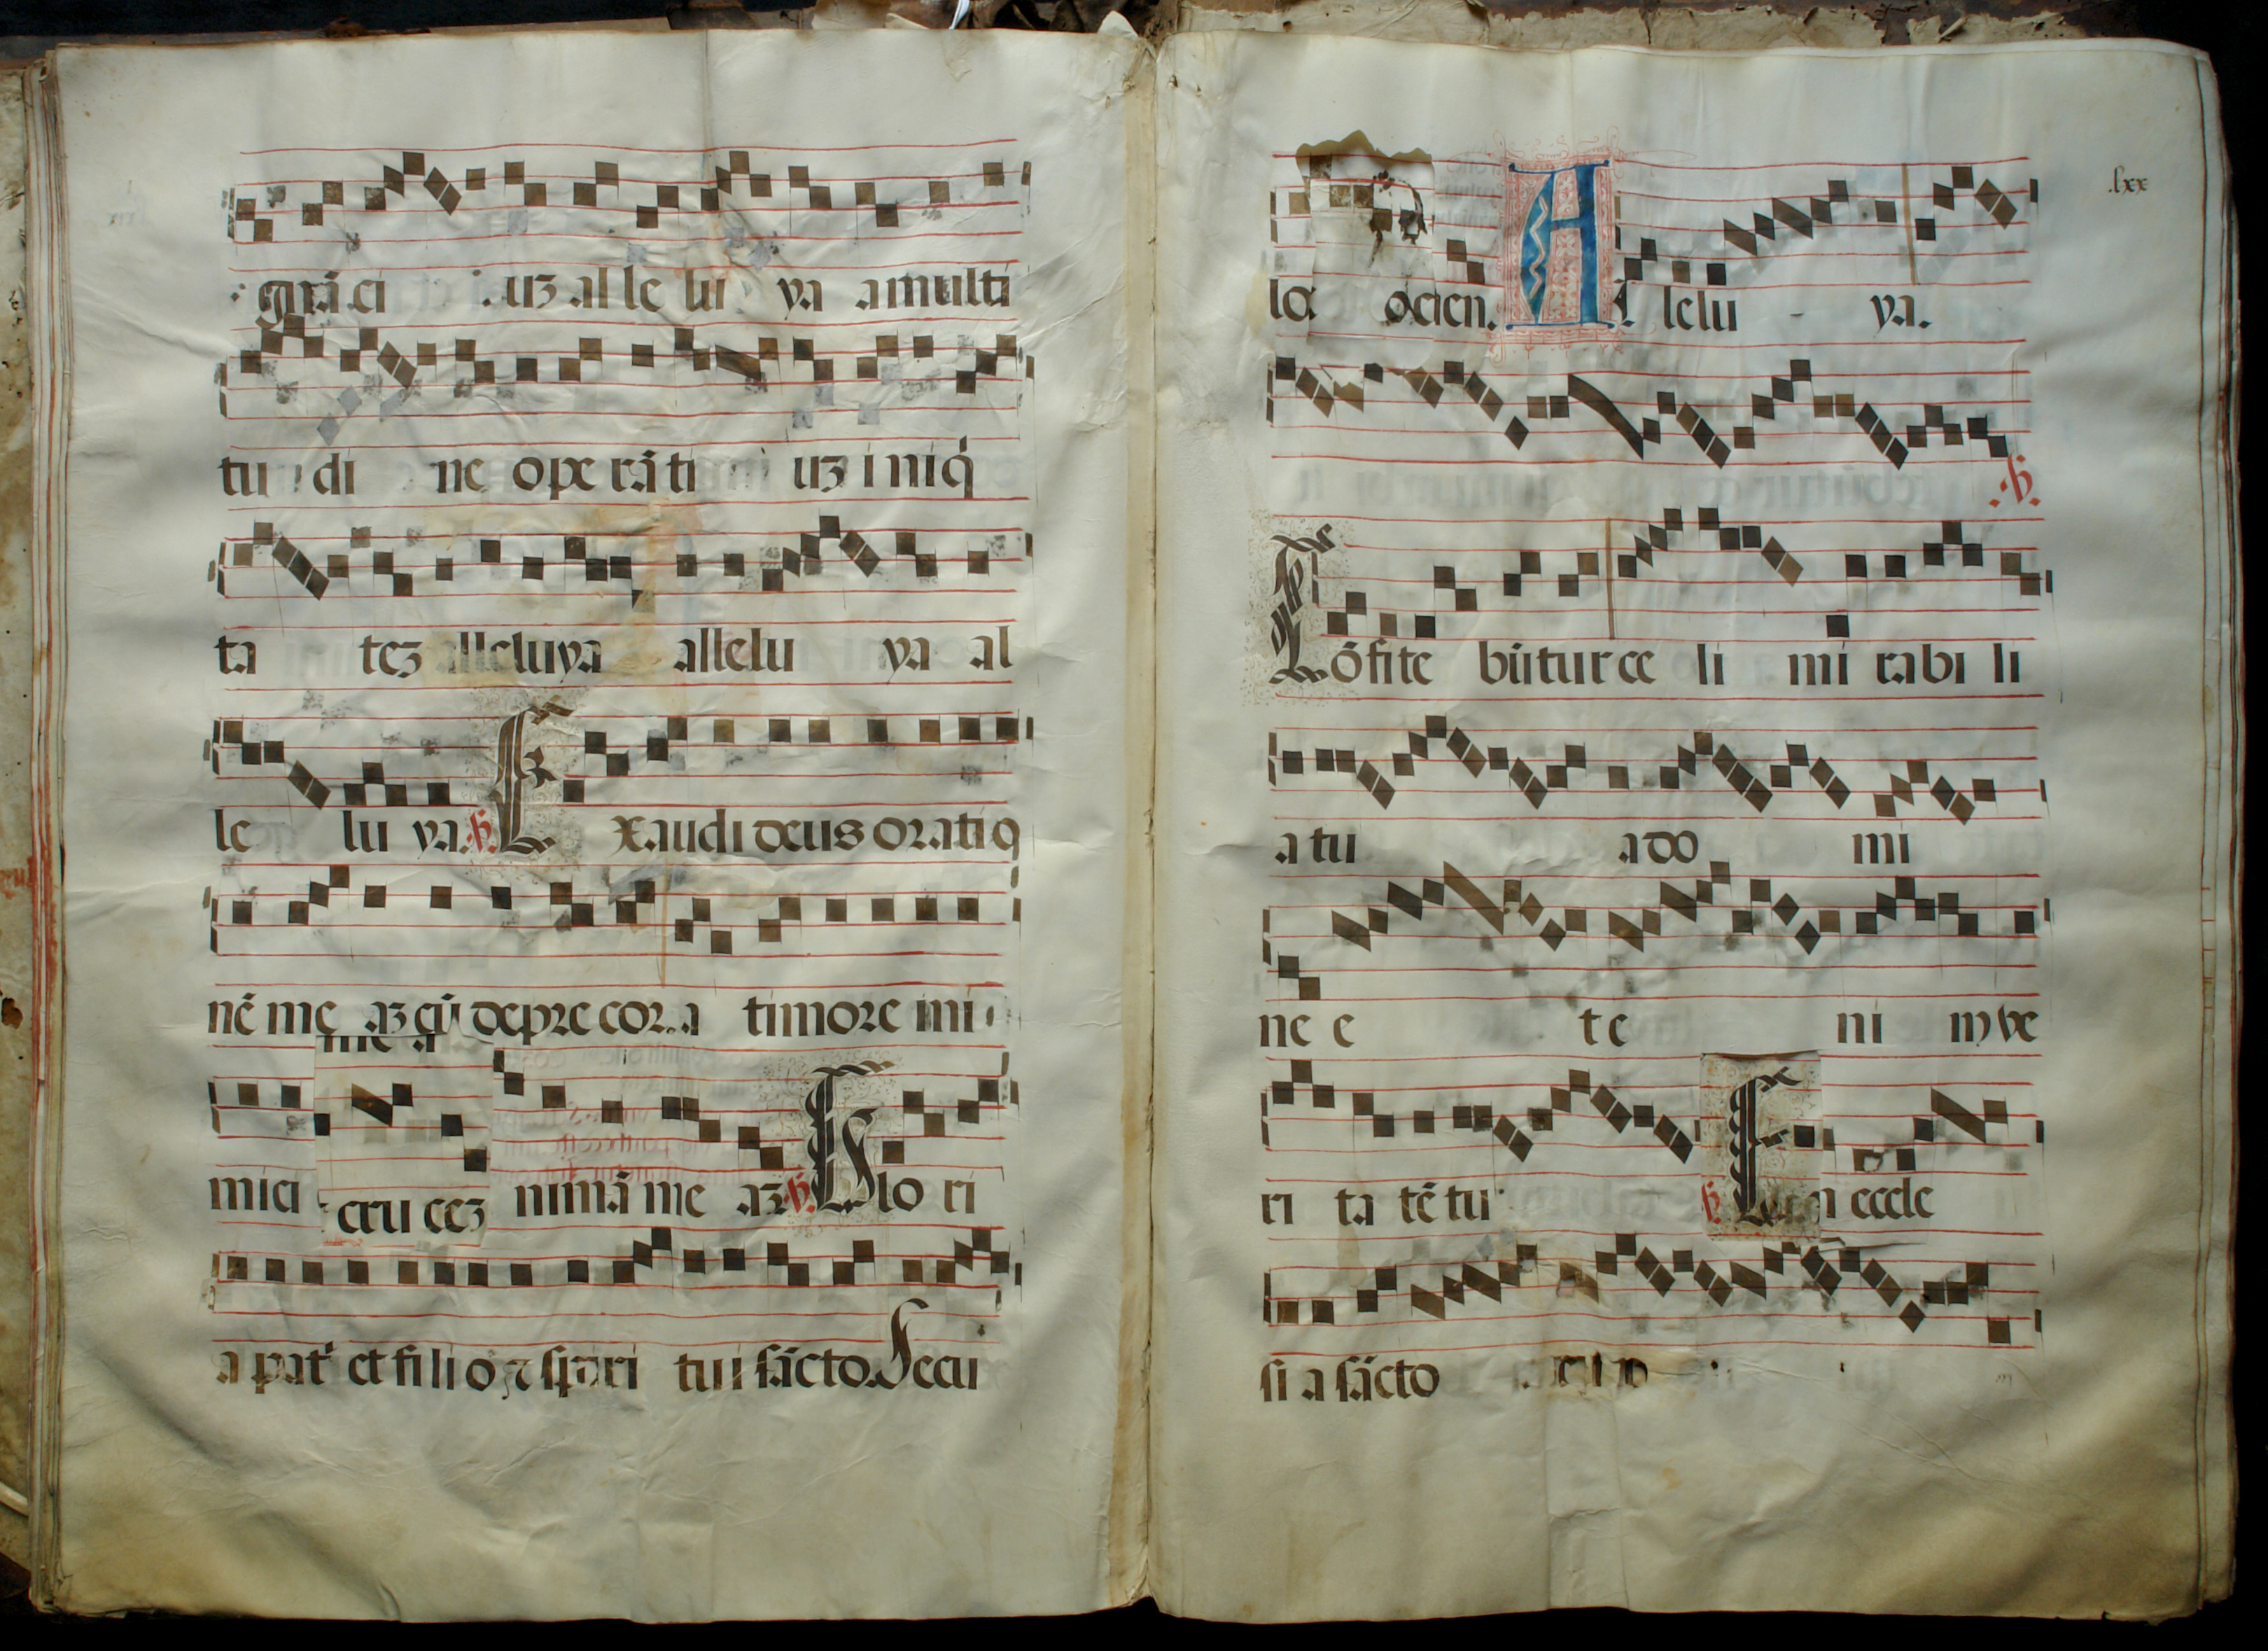 gnãci uʒ al le lu ya a multi
tu di ne ope rãti uʒ i niq̃
ta teʒ alleluya allelu ya al
le lu ya. Exaudi deus oratiq
nẽ me aʒ cũ depre cor. a timore ini
me a
mici eru ceʒ nimã me aʒ Glo ri
a pat' et fi li o ⁊ spiri tui sãcto. Secu
.lxx
lo ocien. A lelu ya.
Cõfite bũtur ce li mi rabi li
a tu a do mi
ne e te ni m ve
ri ta tẽ tu eccle
si a sãcto